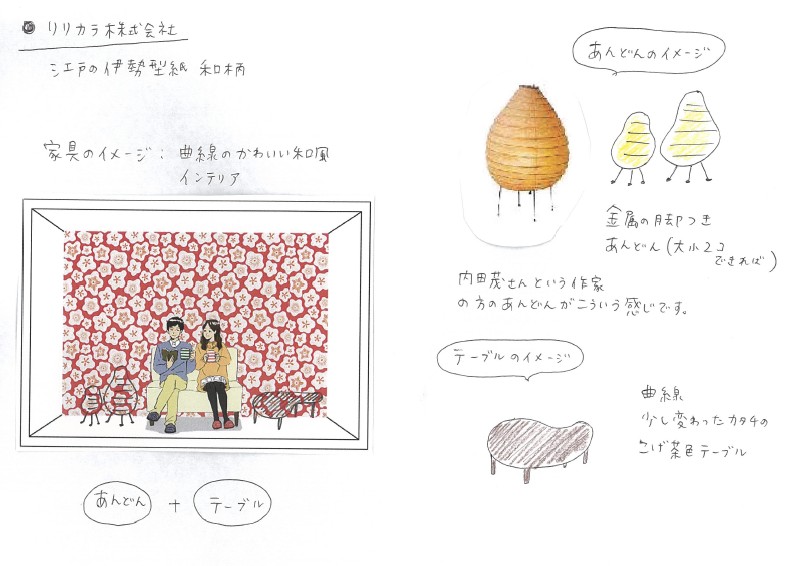 リリカラ株式会社
江戸の伊勢型紙 和柄
家具のイメージ: 曲線のかわいい和風
インテリア
あんどん + テーブル
あんどんのイメージ
金属の脚つき
あんどん(大小2コ
できれば)
内田茂さんという作家
の方のあんどんがこういう感じです。
テーブルのイメージ
曲線
少し変わったカタチの
こげ茶色テーブル